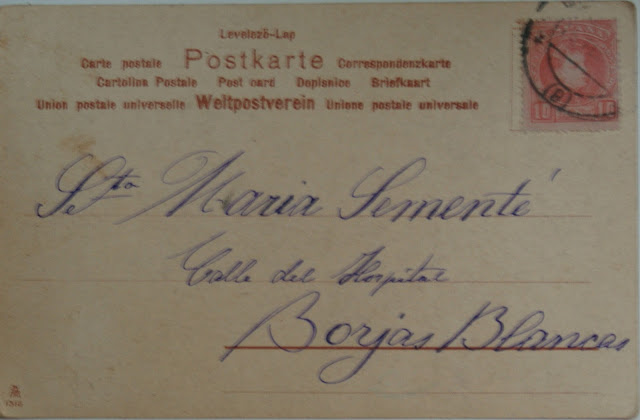 Levelező-Lap
Carte postale Postkarte Correspondenzkarte
Cartolina Postale Post card Dopisnice Briefkaart
Union postale universelle Weltpostverein Unione postale universale
Sta Maria Sementé
Calle del Hospital
Borjas Blancas
10 10
(8)